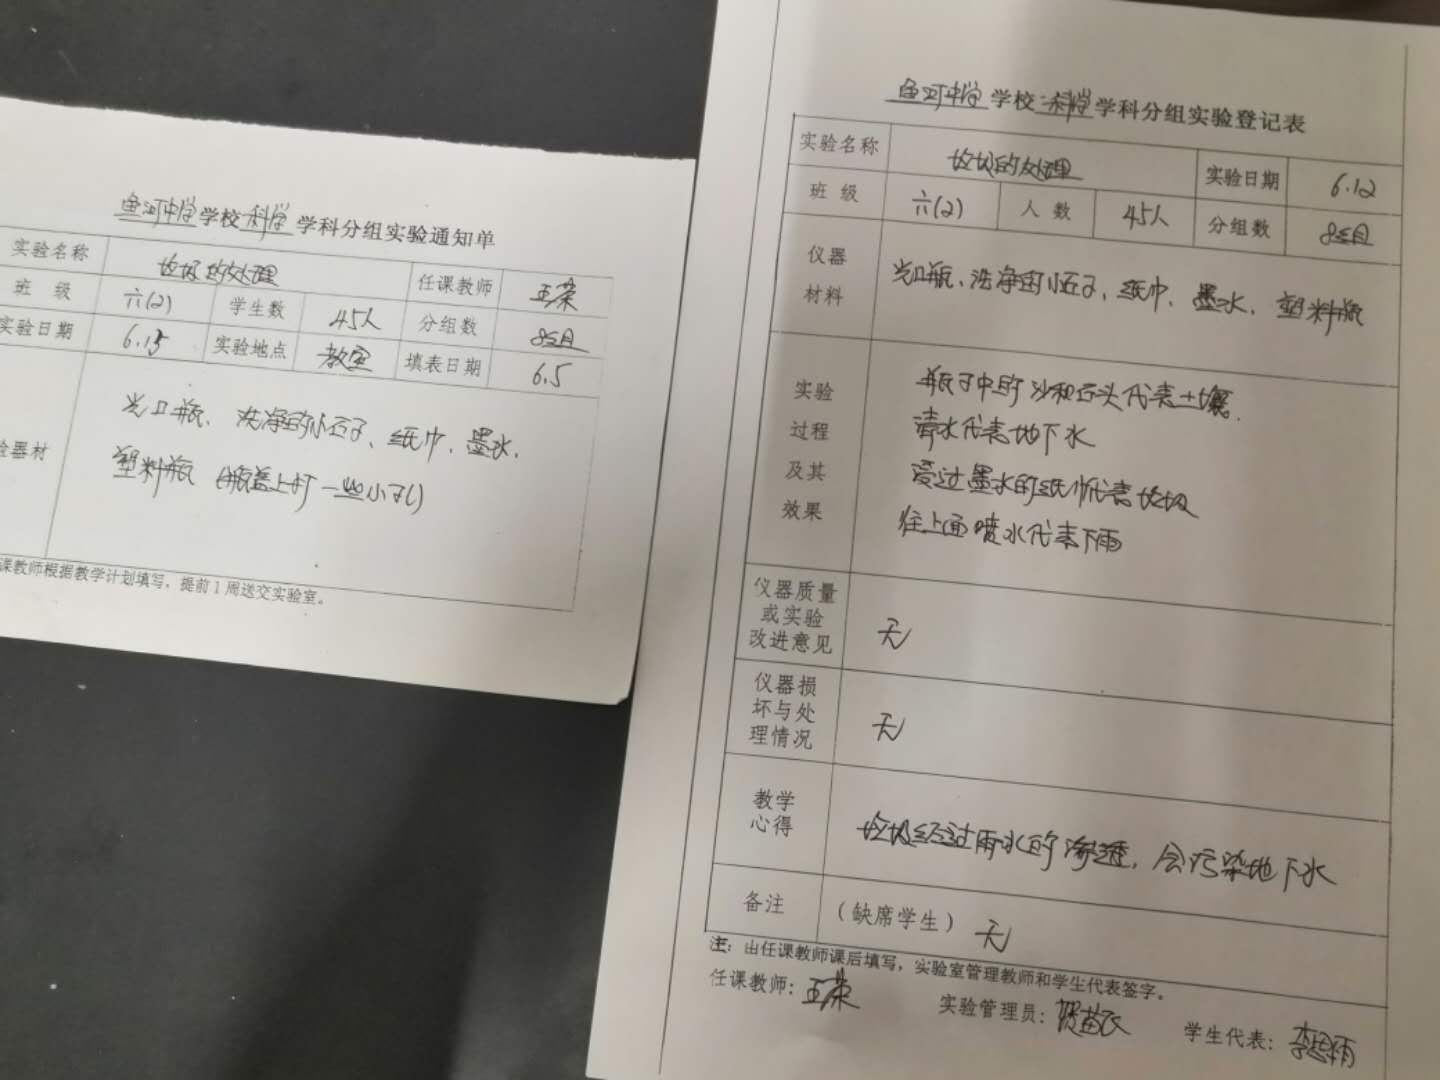 鱼河中学学校科学学科分组实验通知单
实验名称 垃圾的处理 任课教师 王荣
班 级 六(2) 学生数 45人 分组数 8组
实验日期 6.13 实验地点 教室 填表日期 6.5
验器材
光口瓶、洗净的小石子、纸巾、墨水、
塑料瓶(瓶盖上打一些小孔)
课教师根据教学计划填写,提前1周送交实验室。
鱼河中学学校科学学科分组实验登记表
实验名称 垃圾的处理 实验日期 6.12
班 级 六(2) 人 数 45人 分组数 8组
仪器
材料
光口瓶、洗净的小石子、纸巾、墨水、塑料瓶
实验
过程
及其
效果
瓶子中的沙和石头代表土壤.
清水代表地下水
浸过墨水的纸巾代表垃圾
往上面喷水代表下雨
仪器质量
或实验
改进意见
无
仪器损
坏与处
理情况
无
教学
心得
垃圾经过雨水的渗透,会污染地下水
备注 (缺席学生) 无
注:由任课教师课后填写,实验室管理教师和学生代表签字。
任课教师:王荣 实验管理员: 学生代表:李思雨